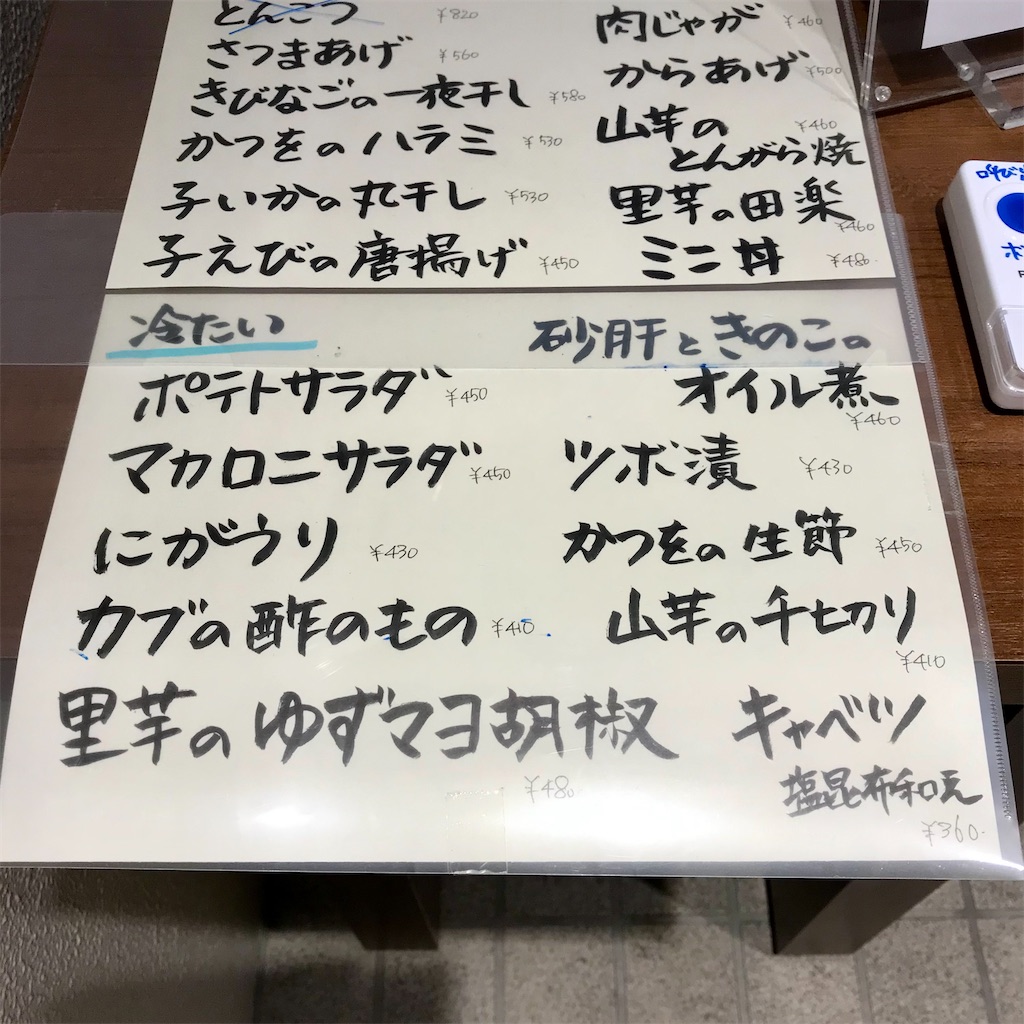 とんこつ ¥820
さつまあげ ¥560
きびなごの一夜干し ¥580
かつをのハラミ ¥530
子いかの丸干し ¥530
子えびの唐揚げ ¥450
肉じゃが ¥460
からあげ ¥500
山芋の ¥460
とんがら焼
里芋の田楽
¥460
ミニ丼 ¥480
冷たい
ポテトサラダ ¥450
マカロニサラダ ¥450
にがうり ¥430
カブの酢のもの ¥410
里芋のゆずマヨ胡椒
¥480
砂肝ときのこの
オイル煮
¥460
ツボ漬 ¥430
かつをの生節 ¥450
山芋の千切り
¥410
キャベツ
塩昆布和え
¥360
呼び